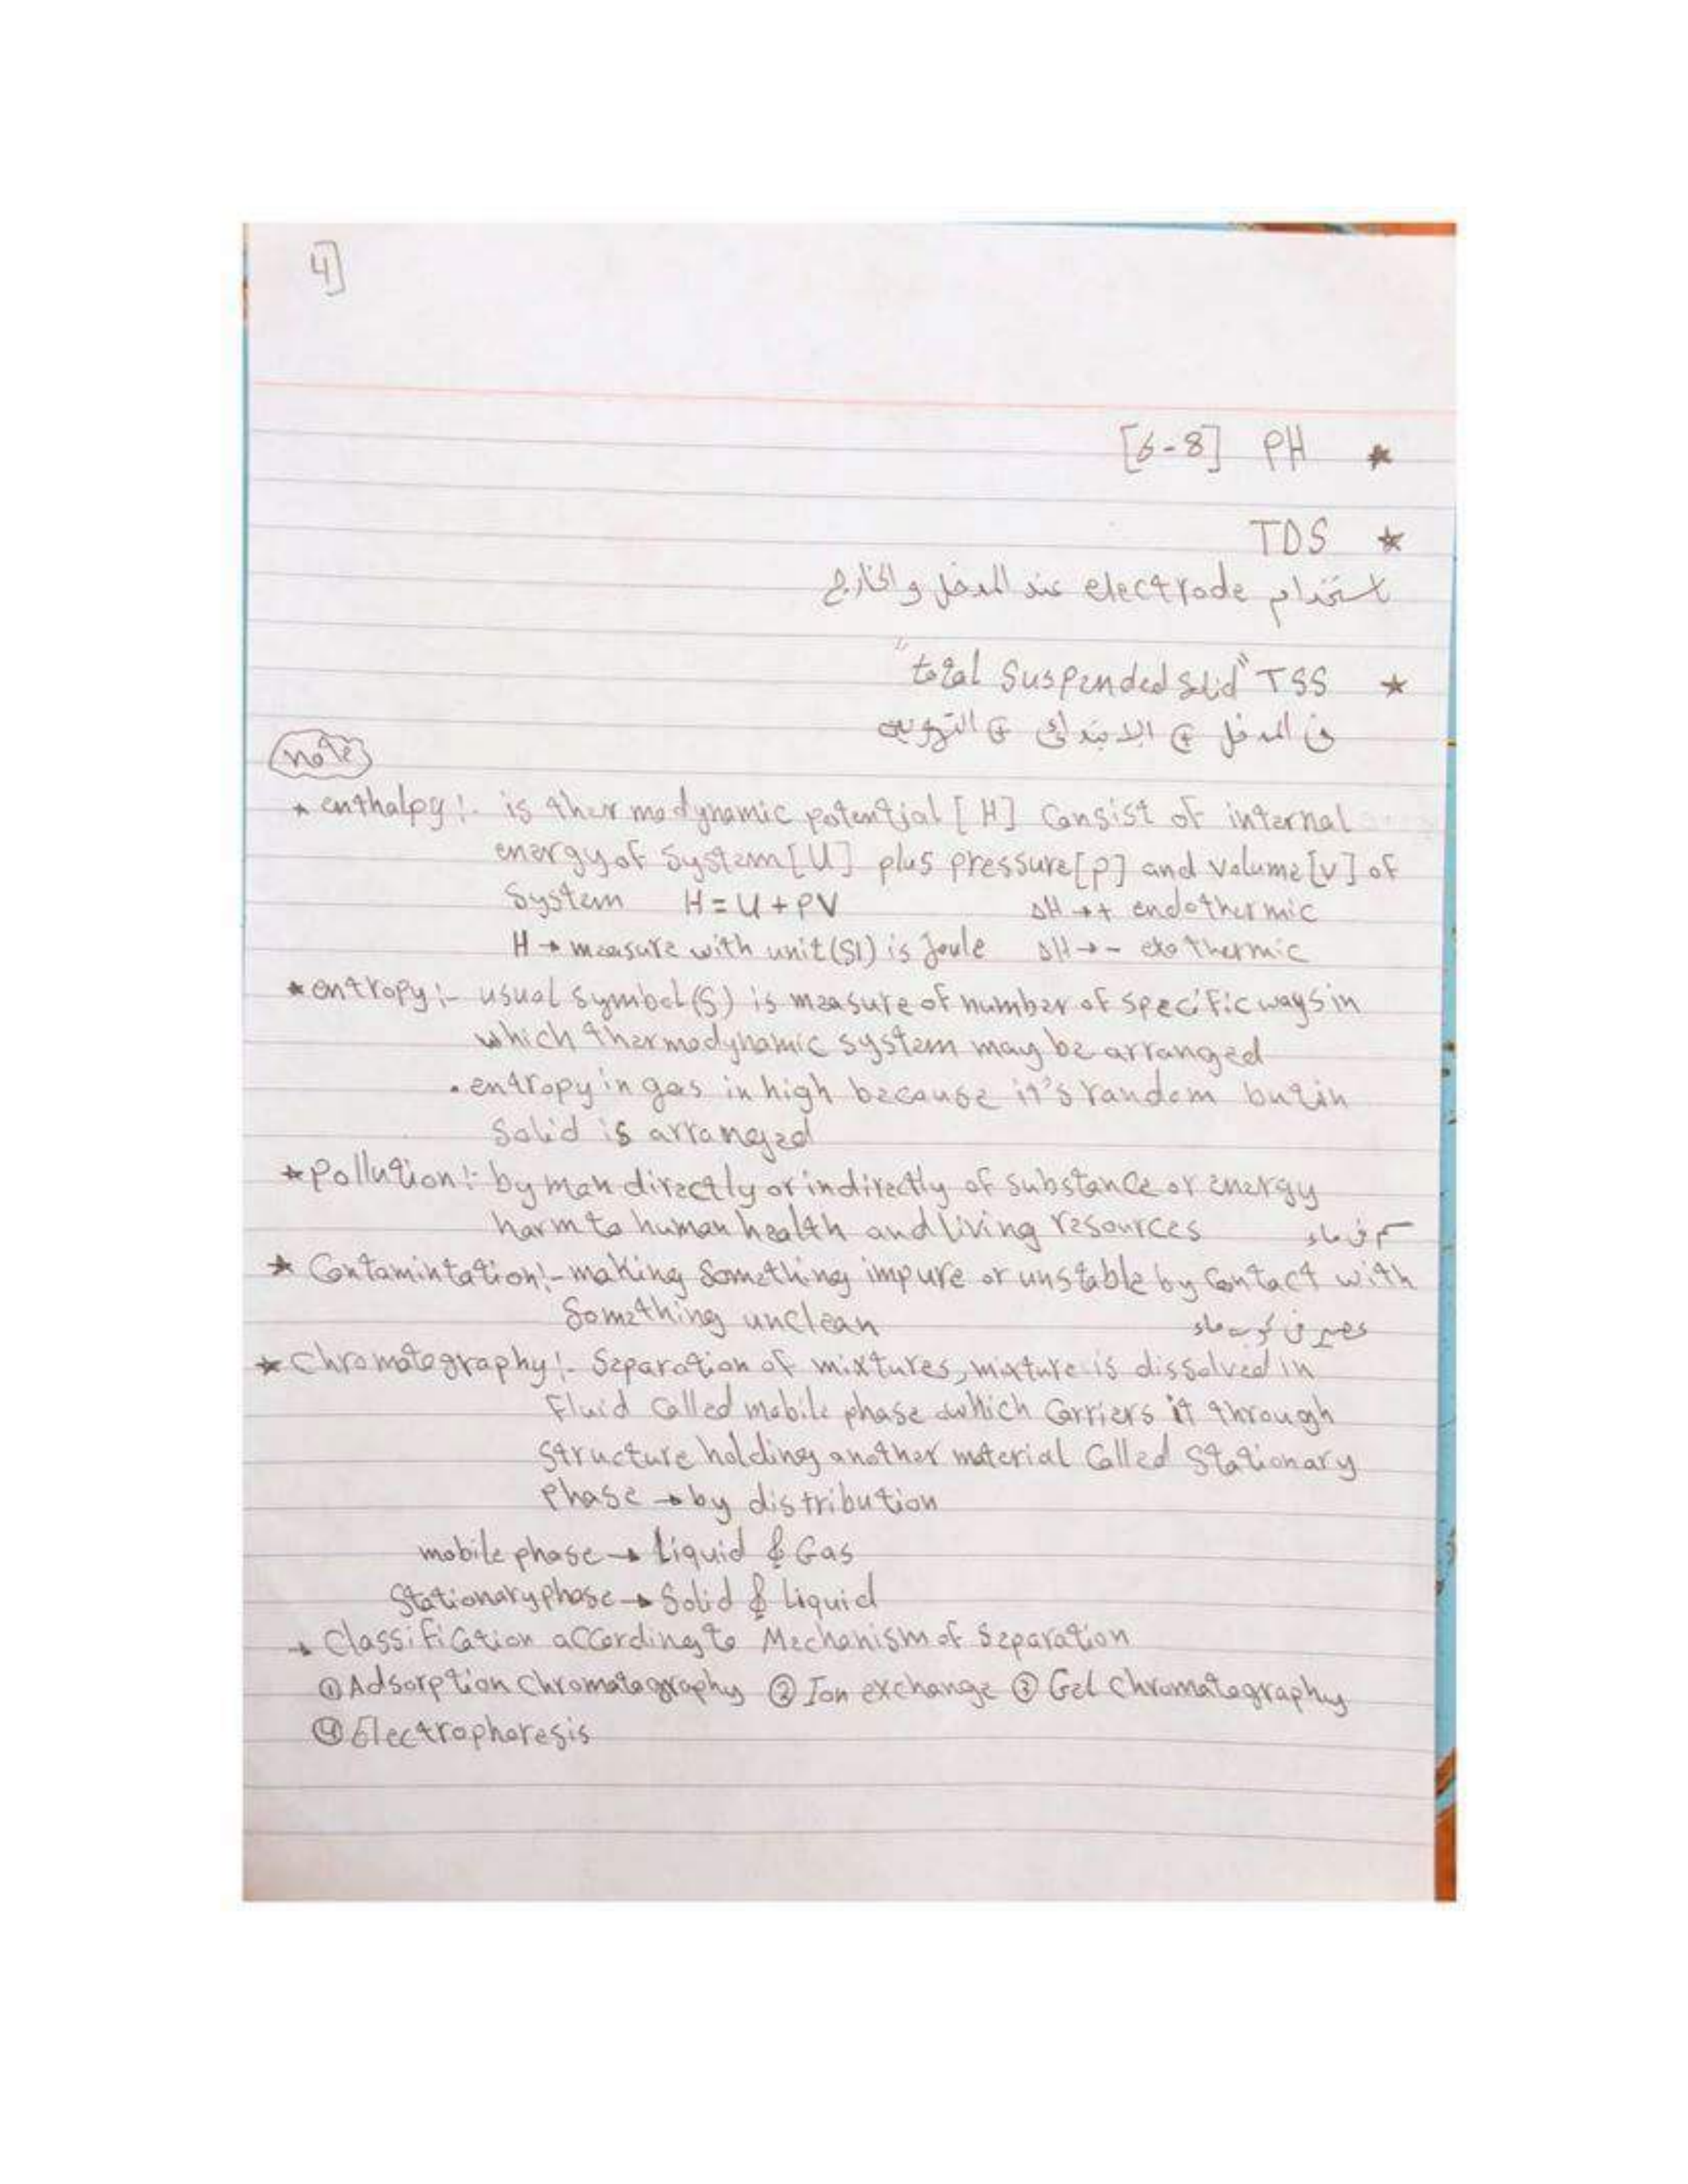 4]
[6-8] PH *
TDS *
باستخدام electrode عند المدخل والخارج
"total Suspended Solid" TSS *
فى المدخل + الابتدائى + التهويه
note
* enthalpy :- is thermodynamic potential [H] Consist of internal
energy of System [U] plus pressure [p] and Volume [v] of
System H = U + PV ΔH → + endothermic
H → measure with unit (SI) is Joule ΔH → - exothermic
* entropy :- usual Symbol (S) is measure of number of specific ways in
which thermodynamic system may be arranged
. entropy in gas in high because it's random but in
Solid is arranged
* Pollution :- by man directly or indirectly of substance or energy
harm to human health and living resources سم فى ماء
* Contamintation :- making Something impure or unstable by Contact with
Something unclean عصير فى كوب ماء
* Chromatography :- Separation of mixtures, mixture is dissolved in
Fluid Called mobile phase which Carriers it through
Structure holding another material Called Stationary
Phase → by distribution
mobile phase → Liquid & Gas
Stationary phase → Solid & Liquid
→ Classification according to Mechanism of Separation
① Adsorption Chromatography ② Ion exchange ③ Gel Chromatography
④ Electrophoresis